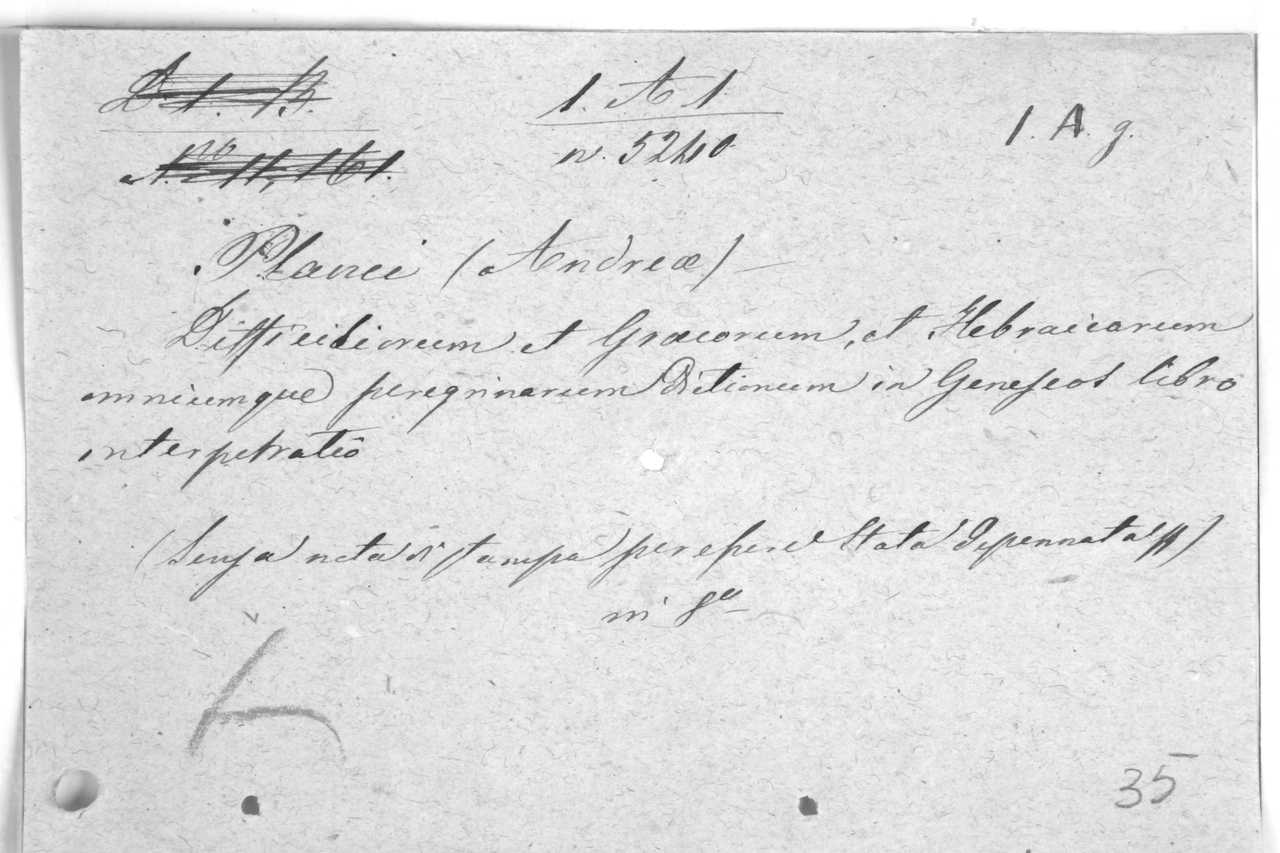 1. A 1
n. 5240
1. A g.
Planci (Andreæ)
Difficiliorum et Græcorum, et Hebraicarum
omniumque peregrinarum Ditionum in Geneseos libro
interpetratio
(Senza nota di stampa per essere Stata depennata)
in 8º
35